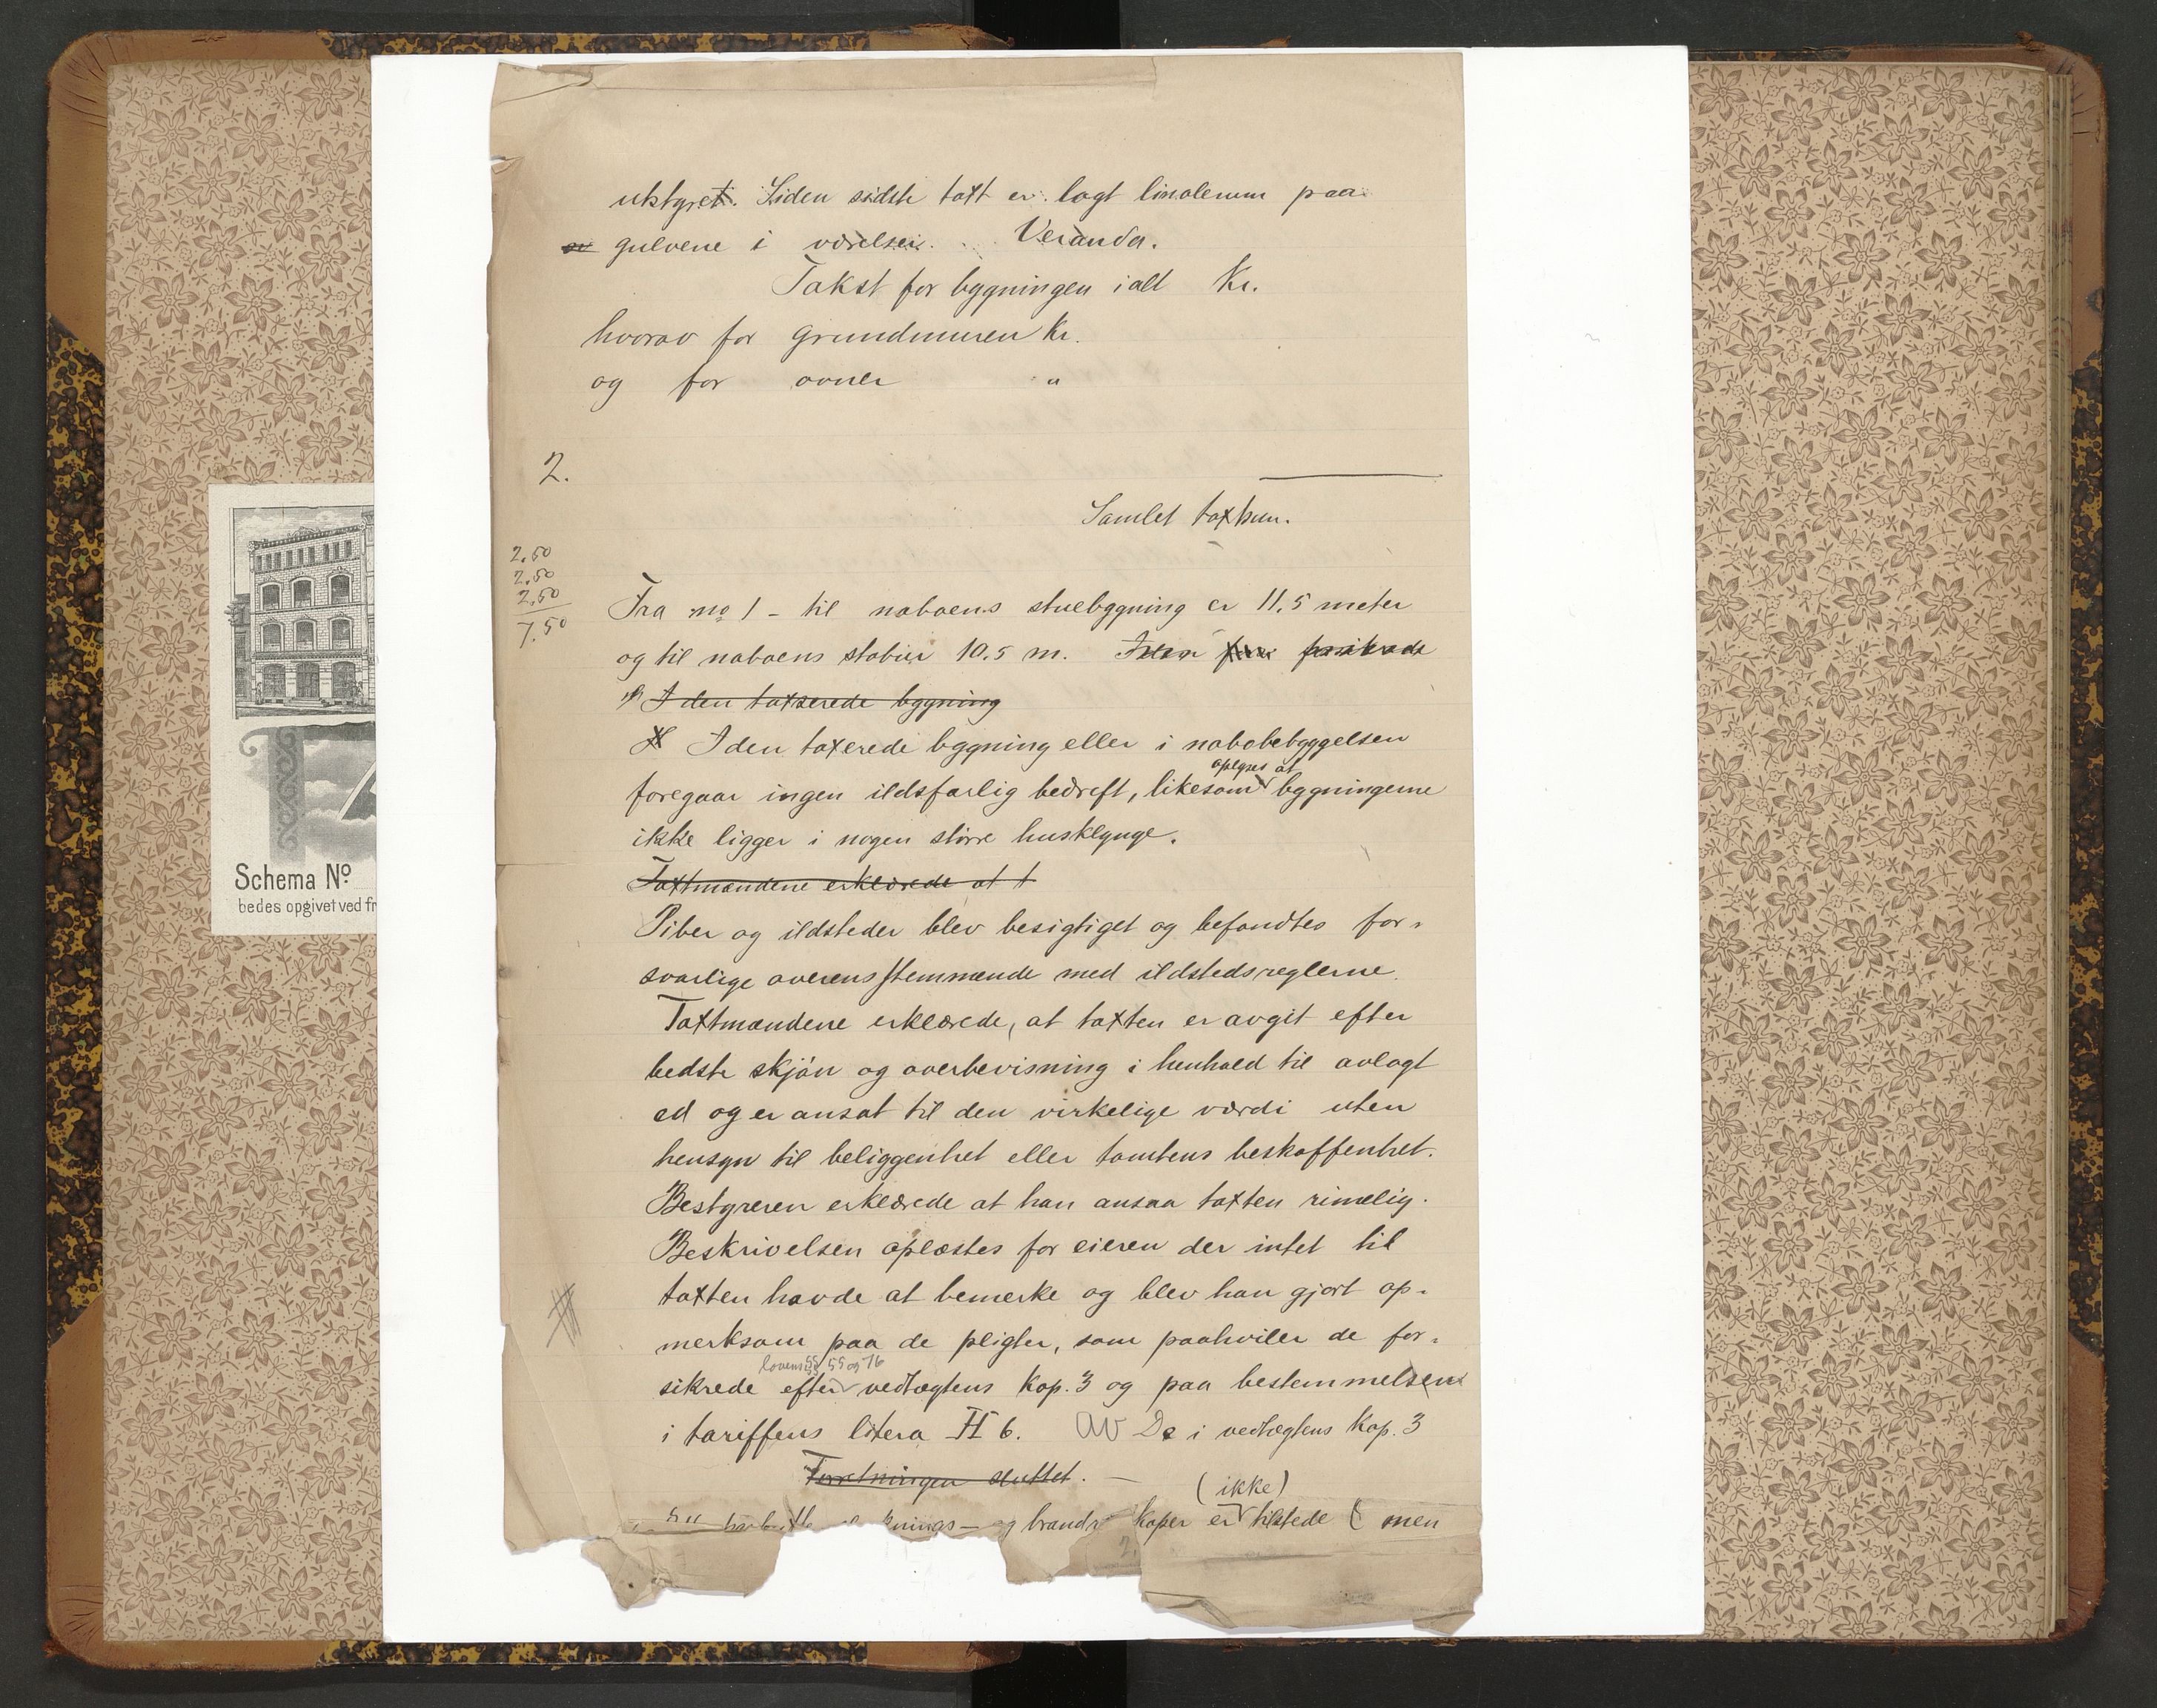 utstyret. Siden sidste taxt er lagt linoleum paa
av gulvene i værelser. Veranda.
Takst for bygningen ialt Kr.
hvorav for grundmuren Kr.
og for ovner "
2.
Samlet taxtsum.
2,50
2,50
2,50
7,50
Fra no 1 - til naboens stuebygning er 11,5 meter
og til naboens stabur 10,5 m.
I den taxserede bygning
I den taxerede bygning eller i nabobebyggelsen
oplyses at
foregaar ingen ildsfarlig bedrift, likesom bygningerne
ikke ligger i nogen større husklynge.
Taxtmændene erklærede at t
Piber og ildsteder blev besigtiget og befandtes for-
svarlige overensstemmende med ildstedsreglerne.
Taxtmændene erklærede, at taxten er avgit efter
bedste skjøn og overbevisning i henhold til avlagt
ed og er ansat til den virkelige værdi uten
hensyn til beliggenhet eller tomtens beskaffenhet.
Bestyreren erklærede at han ansaa taxten rimelig.
Beskrivelsen oplæstes for eieren der intet til
taxten havde at bemerke og blev han gjort op-
merksom paa de pligter, som paahviler de for-
lovens §§ 55 og 76
sikrede efter vedtægtens Kap. 3 og paa bestemmelsen
i tariffens litera H 6. av De i vedtægtens Kap. 3
Forretningen sluttet. —
(ikke)
nings- og brandr kaper er tilstede ( men
Schema No
bedes opgivet ved fr